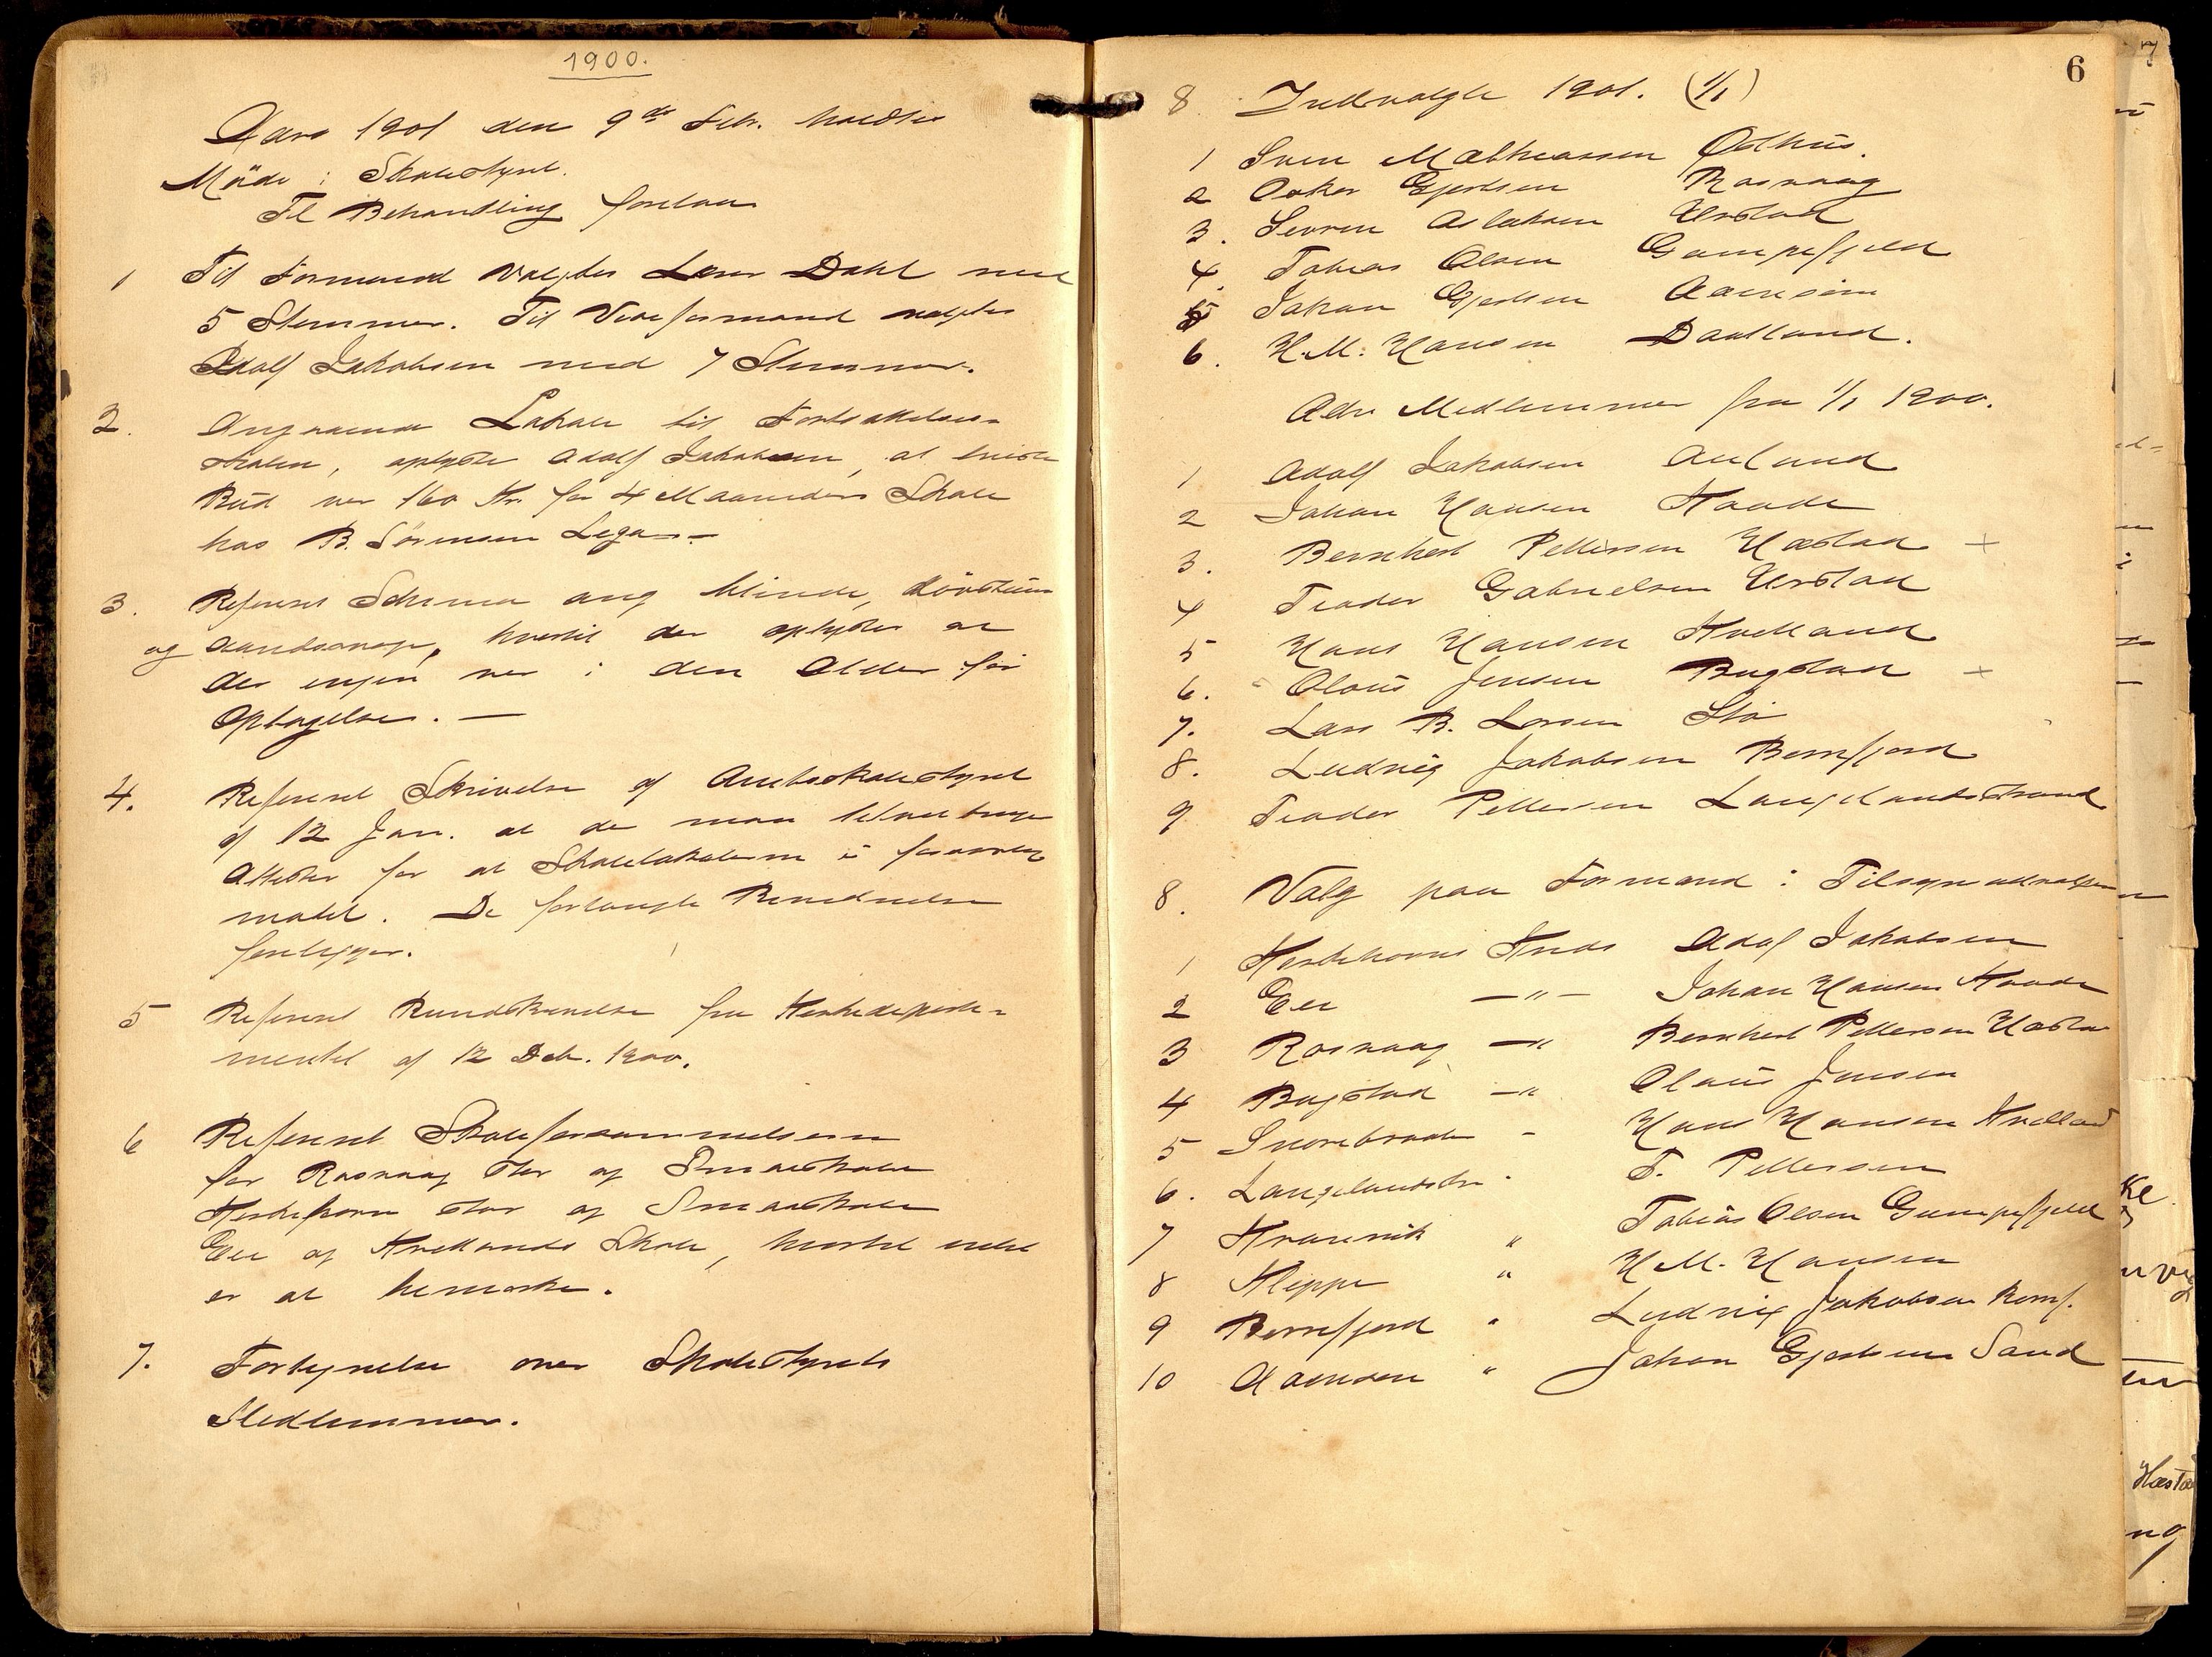 1900.
Aars 1901 den 9de Febr. holdtes
Möde i Skolestyret.
Til Behandling forelaa
1 Til Formand valgtes Lærer Dahl med
5 Stemmer. Til Viceformand valgtes
Adolf Jakobsen med 7 Stemmer.
2. Angaaende Lokale til Fortsættelses-
skolen, oplyste Adolf Jakobsen, at laveste
Bud var 160 Kr. for 4 Maaneders Skole
hos B. Sörensen Lega.-
3. Referert Schema ang blinde, dövstum
og aandssvage, hvortil der oplystes at
der ingen var i den Alder for
Optagelse. —
4. Referert Skrivelse af Amtsskolestyret
af 12 Jan. at de maa
Attester for at Skolelokalerne er
. De forlangte
foreligger.
5 Referert Rundskrivelse fra Kirkedeparte-
mentet af 12 Deb. 1900.
6 Referert Skoleforsammelserne
for Rasvaag Stor og Smaaskole
Kirkehavn Stor og Smaaskole
Eie og Kvellands Skole, hvortil intet
er at bemærke.
7. Fortegnelse over Skolestyrets
Medlemmer.
6
8 Indvalgte 1901. (1/1)
1 Sven Mathiassen Ödhus.
2 Oskar Gjertsen Rasvaag
3. Severin Aslaksen Urstad
4. Tobias Olsen Gumpefjeld
5 Johan Gjertsen
6. H. M. Hansen Daatland.
Ældre Medlemmer fra 1/1 1900.
1 Adolf Jakobsen
2 Johan Hansen
3. Bernhert Pettersen Hæstad +
4 Teodor Gabrielsen Urstad
5 Hans Hansen Kvelland
6. Olaus Jensen Bugstad +
7. Lars B. Larsen Stö
8. Ludvig Jakobsen Bernfjord
9 Teodor Pettersen Langelandsstrand
8. Valg paa Formænd i Tilsynudvalgene
1 Kirkehavns Kreds Adolf Jakobsen
2 Eie —"— Johan Hansen
3 Rasvaag —" Bernhert Pettersen Hæstad
4 Bugstad —" Olaus Jensen
5 Snorebraaten - Hans Hansen Kvelland
6. Langelandsstr. T. Pettersen
7 Kraagevik " Tobias Olsen Gumpefjeld
8 Kleppe " H. M. Hansen
9 Bernfjord " Ludvig Jakobsen Bernf.
10 " Johan Gjertsen Sand